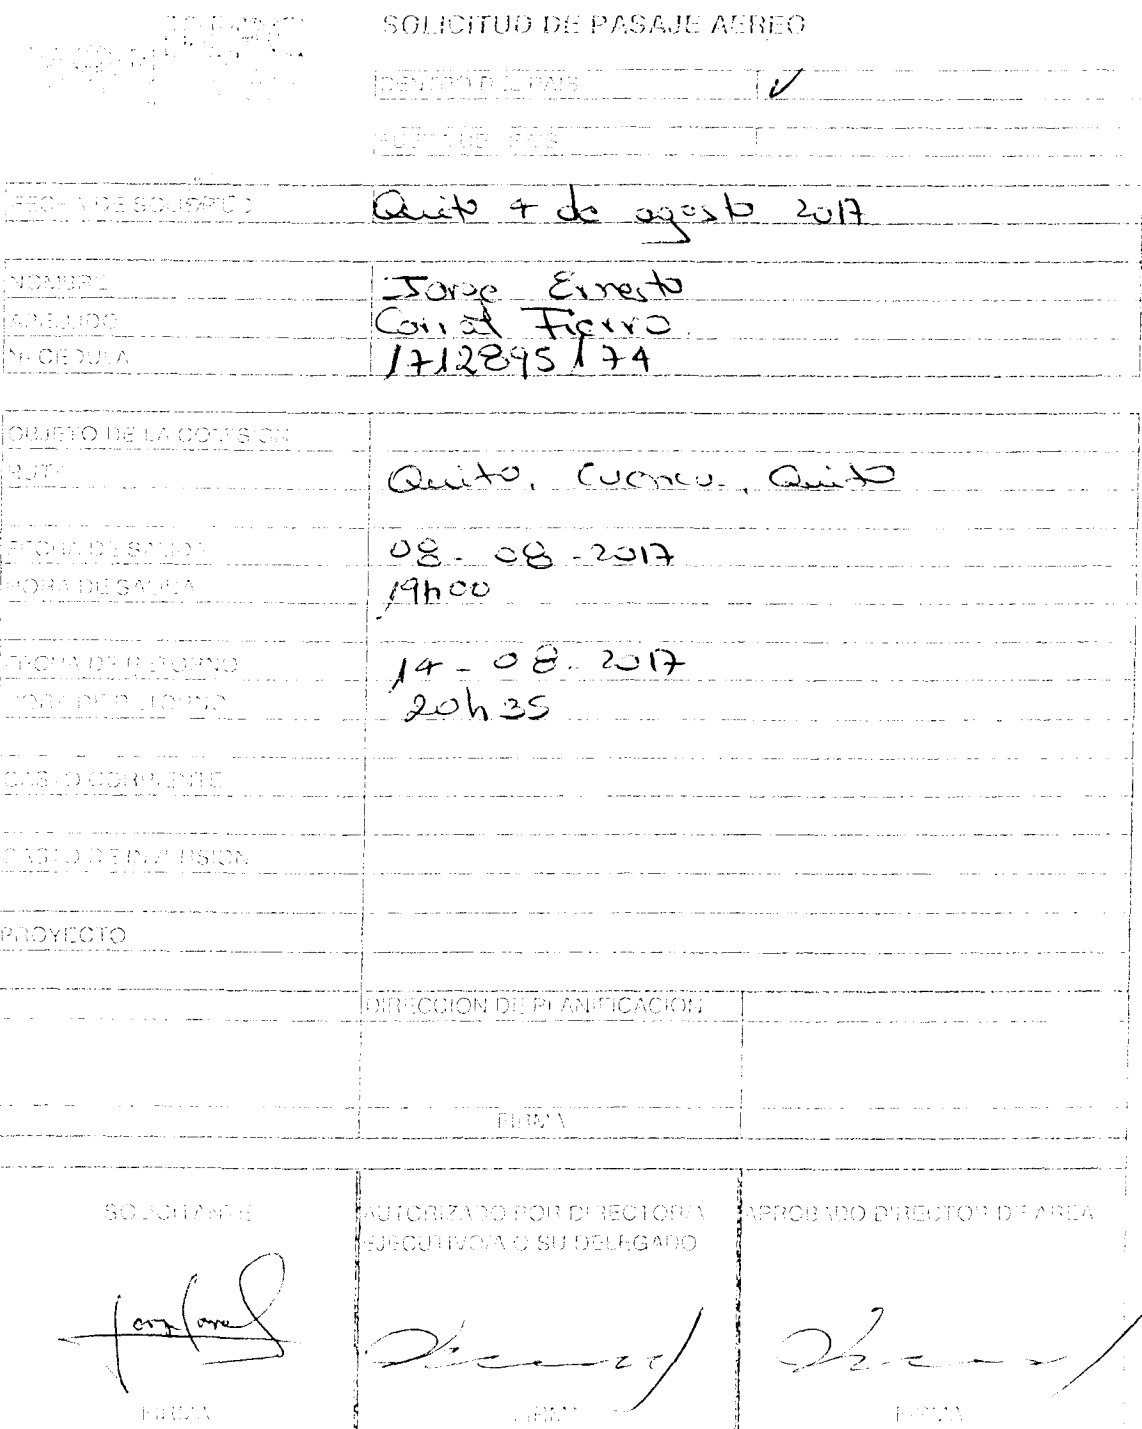 SOLICITUD DE PASAJE AEREO
DENTRO DEL PAIS ✓
FUERA DEL PAIS
FECHA DE SOLICITUD Quito 4 de agosto 2017
NOMBRE Jorge Ernesto
APELLIDO Corral Fierro.
Nº CEDULA 1712895174
OBJETO DE LA COMISION
RUTA Quito, Cuenca, Quito
FECHA DE SALIDA 08-08-2017
HORA DE SALIDA 19h00
FECHA DE RETORNO 14-08-2017
HORA DE RETORNO 20h35
GASTO CORRIENTE
GASTO DE INVERSION
PROYECTO
DIRECCION DE PLANIFICACION
FIRMA
SOLICITANTE AUTORIZADO POR DIRECTOR/A APROBADO DIRECTOR DE AREA
EJECUTIVO/A O SU DELEGADO
FIRMA FIRMA FIRMA